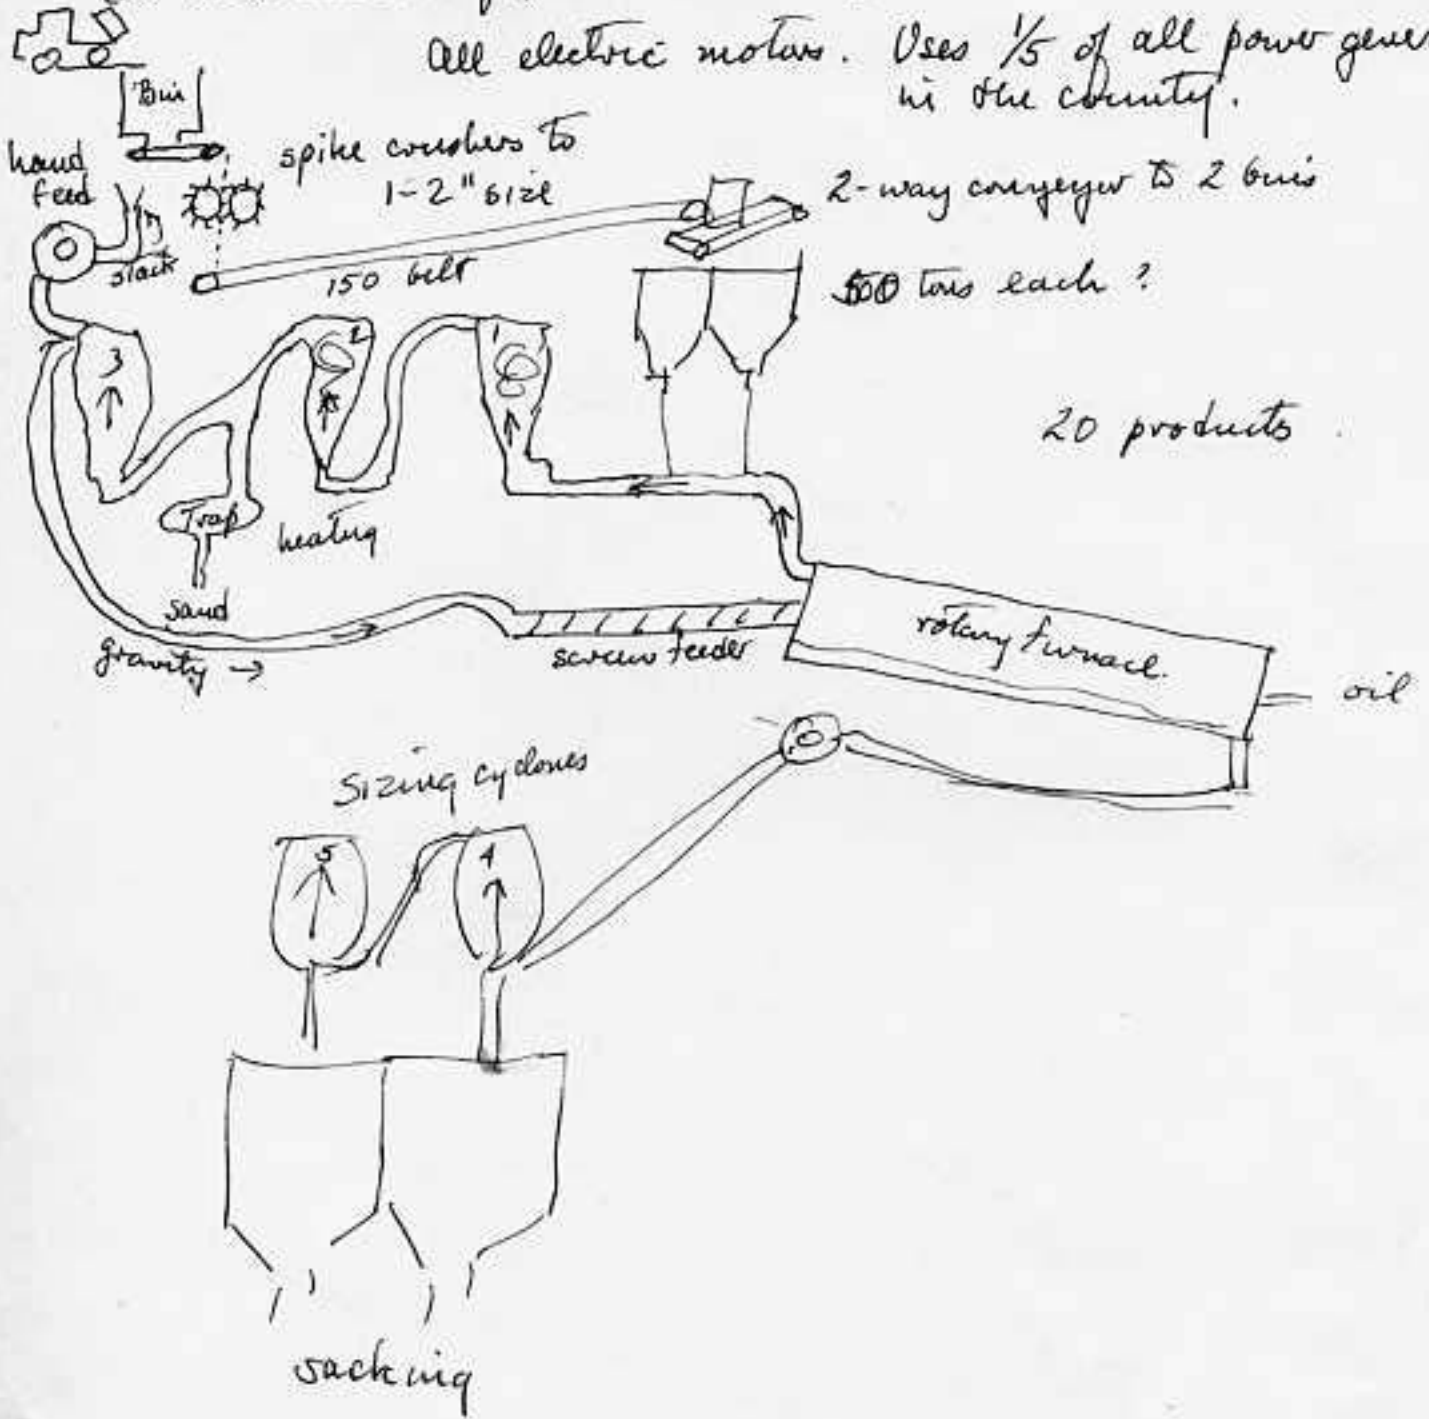 all electric motors. Uses 1/5 of all power gener
in the county.
Bin
hand
feed
spike crushers to
1-2" size
2-way conveyer to 2 bins
stack
150 belt
500 tons each ?
3
2
1
20 products
Trap
heating
sand
gravity →
screw feeder
rotary furnace.
oil
Sizing cyclones
5
4
sacking